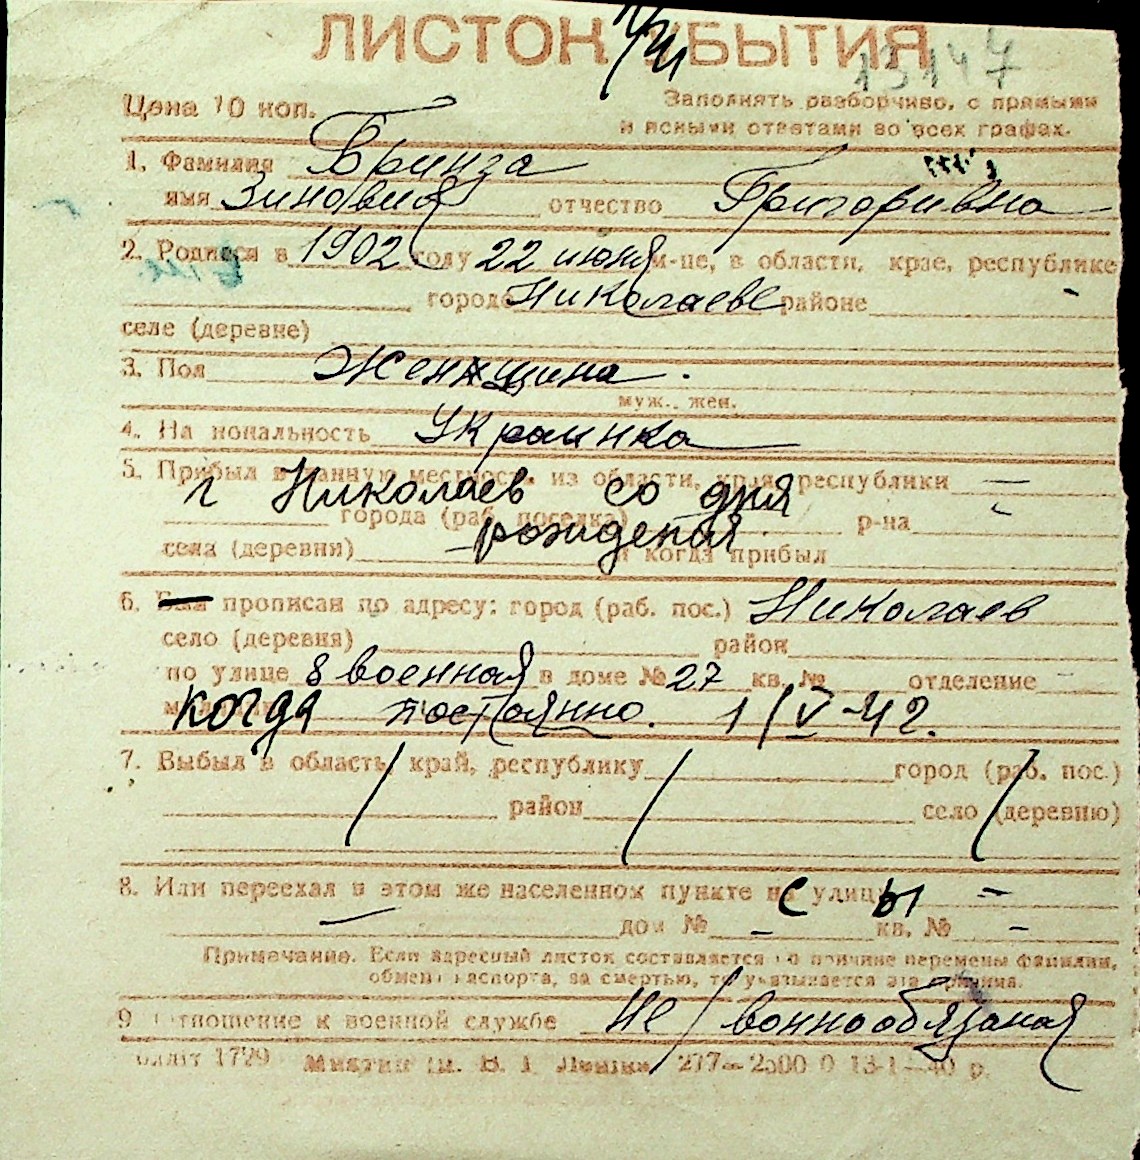 ЛИСТОК УБЫТИЯ
13147
Цена 10 коп. Заполнять разборчиво, с прямыми
и ясными ответами во всех графах.
1. Фамилия Бринза
имя Зиновия отчество Григоривна
2. Родился в 1902 году 22 июня м-це, в области, крае, республике
городе Николаеве районе
селе (деревне)
3. Пол Женщина.
муж., жен.
4. На нональность Украинка
5. Прибыл в данную местность из области, края, республики –
г Николаев со дня
города (раб. поселка) р-на
рождения
села (деревни) и когда прибыл
6. Был прописан по адресу: город (раб. пос.) Николаев
село (деревня) район
по улице 8 военная в доме № 27 кв. № отделение –
когда постоянно. 1/V-42.
7. Выбыл в область, край, республику город (раб. пос.)
район село (деревню)
8. Или переехал в этом же населенном пункте на улицу –
с ы
– дом № – кв. № –
Примечание. Если адресный листок составляется по причине перемены фамилии,
обмена паспорта, за смертью, то указывается эта причина.
9 Отношение к военной службе Не / воннообязаная
1729 277–2500 0 13-1–40 р.